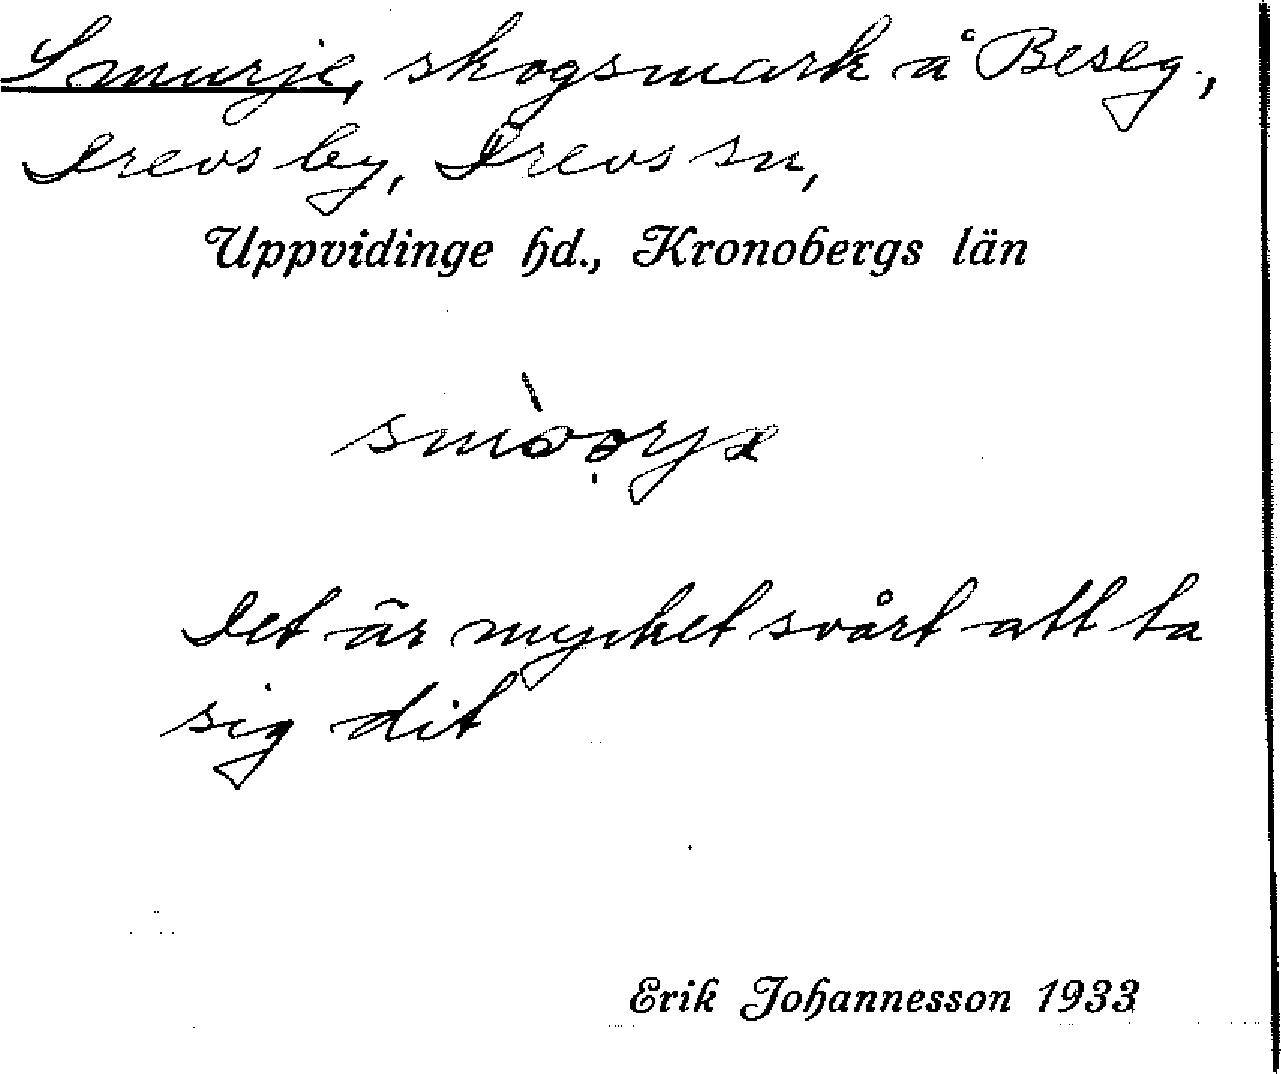 Smurje, skogsmark å Beseg.,
Drevs by, Drevs sn,
Uppvidinge hd., Kronobergs län
Det är mycket svårt att ta
sig dit
Erik Johannesson 1933